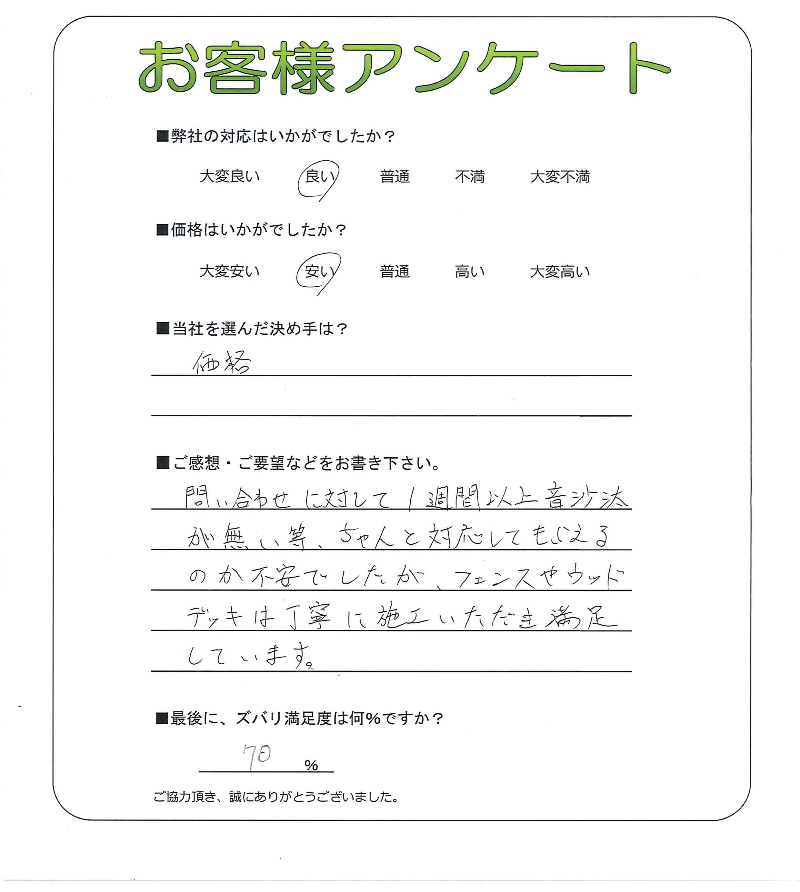 お客様アンケート
■弊社の対応はいかがでしたか？
大変良い 良い 普通 不満 大変不満
■価格はいかがでしたか？
大変安い 安い 普通 高い 大変高い
■当社を選んだ決め手は？
価格
■ご感想・ご要望などをお書き下さい。
問い合わせに対して1週間以上音沙汰
が無い等、ちゃんと対応してもらえる
のか不安でしたが、フェンスやウッド
デッキは丁寧に施工いただき満足
しています。
■最後に、ズバリ満足度は何%ですか？
70 %
ご協力頂き、誠にありがとうございました。